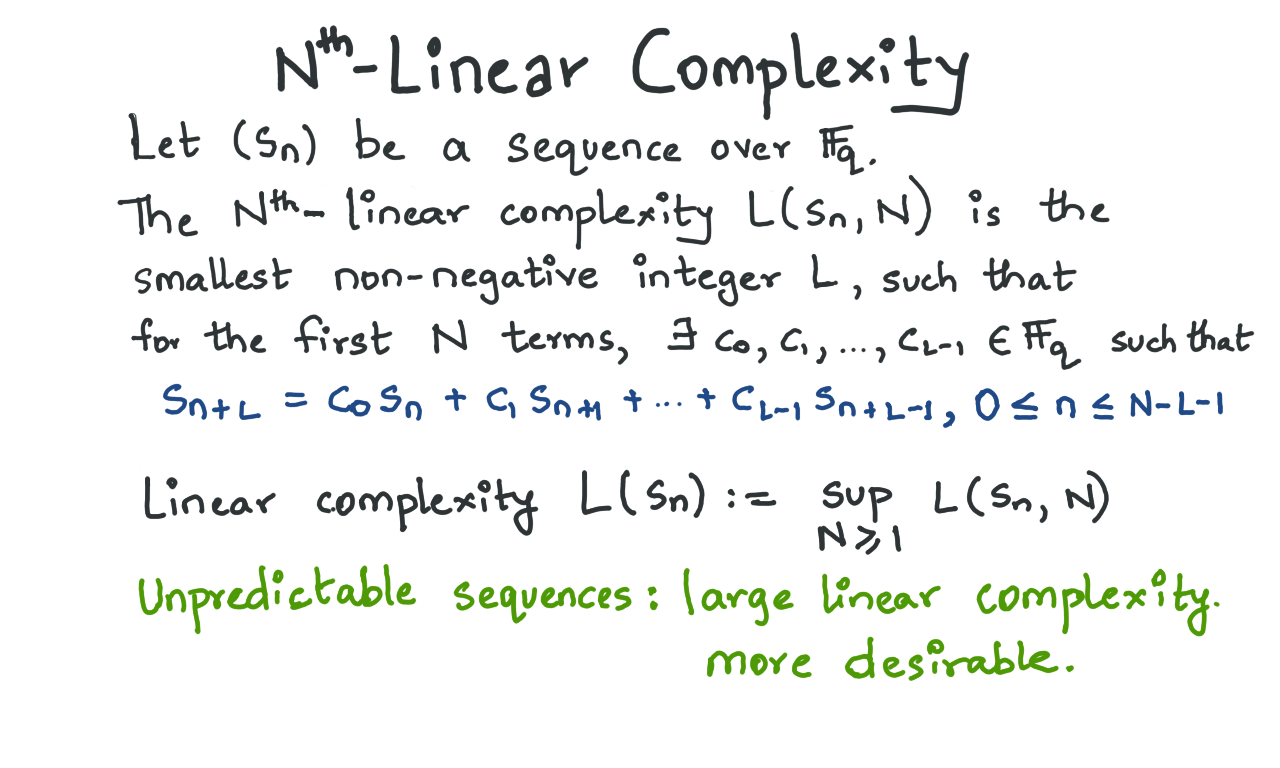 Nᵗʰ-Linear Complexity
Let (Sₙ) be a sequence over 𝔽_q.
The Nᵗʰ- linear complexity L(Sₙ, N) is the
smallest non-negative integer L, such that
for the first N terms, ∃ c₀, c₁, ..., c_{L-1} ∈ 𝔽_q such that
S_{n+L} = C₀Sₙ + C₁S_{n+1} + ... + C_{L-1}S_{n+L-1}, 0 ≤ n ≤ N-L-1
Linear complexity L(Sₙ) := sup_{N⩾1} L(Sₙ, N)
Unpredictable sequences: large linear complexity.
more desirable.